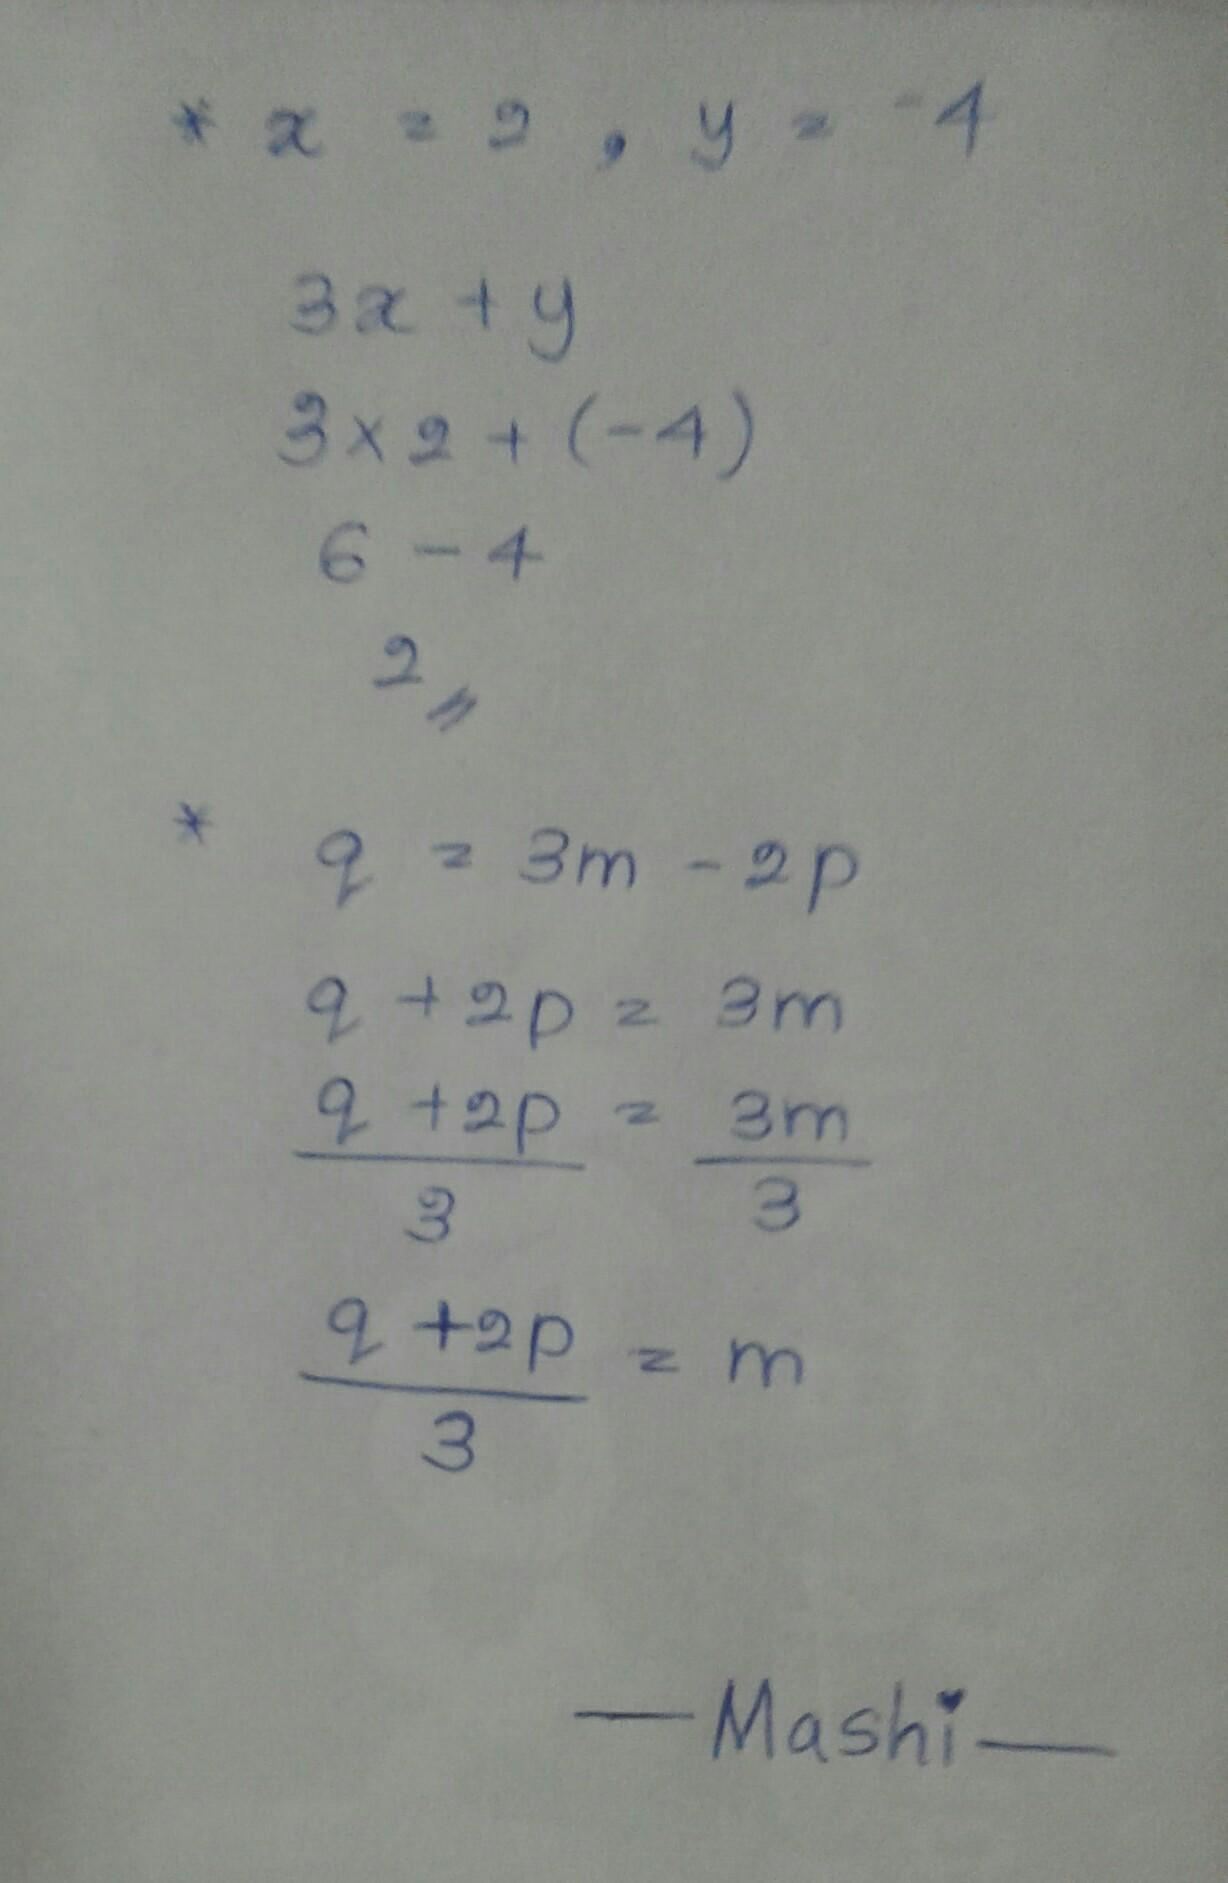 * x = 2, y = -4
3x + y
3 × 2 + (-4)
6 - 4
2 //
* q = 3m - 2p
q + 2p = 3m
q + 2p = 3m
3 3
q + 2p = m
3
— Mashi —